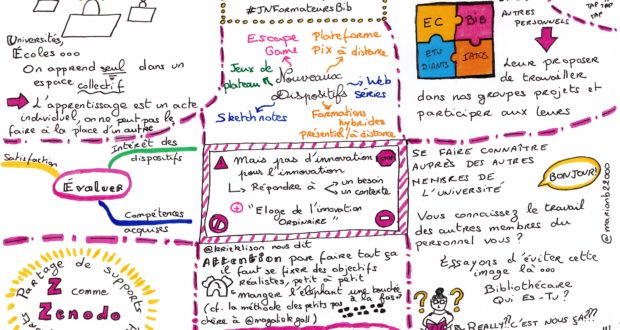 Universités,
Écoles...
On apprend seul dans un
espace collectif
L'apprentissage est un acte
individuel, on ne peut pas le
faire à la place d'un autre
#JNFormateursBib
Escape
Game
Plateforme
Pix à distance
Jeux de
plateau
Nouveaux
Dispositifs
Web
Séries
Sketchnotes
Formations
hybrides
Présentiel/à distance
EC
BIB
ETU
DIANTS
IATOS
AUTRES
PERSONNELS
TAP
TAP
Leur proposer
de travailler
dans nos groupes projets et
participer aux leurs
Satisfaction
Intérêt des
dispositifs
Évaluer
Compétences
acquises
Mais pas d'innovation
pour l'innovation
Répondre à
un besoin
un contexte
"Eloge de l'innovation
Ordinaire"
SE FAIRE CONNAÎTRE
AUPRÈS DES AUTRES
MEMBRES DE
L'UNIVERSITÉ
BONJOUR!
Vous connaissez le travail
des autres membres du
personnel vous ?
Essayons d'éviter cette
image là...
Bibliothécaire
Qui es-tu ?
REALLY?! C'EST NOUS ÇA???
@marionb22000
Partage de supports
Z comme
Zenodo
nous dit
Attention pas faire tout ça
il faut se fixer des objectifs
réalistes, petit à petit
manger l'éléphant une bouchée
à la fois
(cf. la méthode des petits pas
chère à